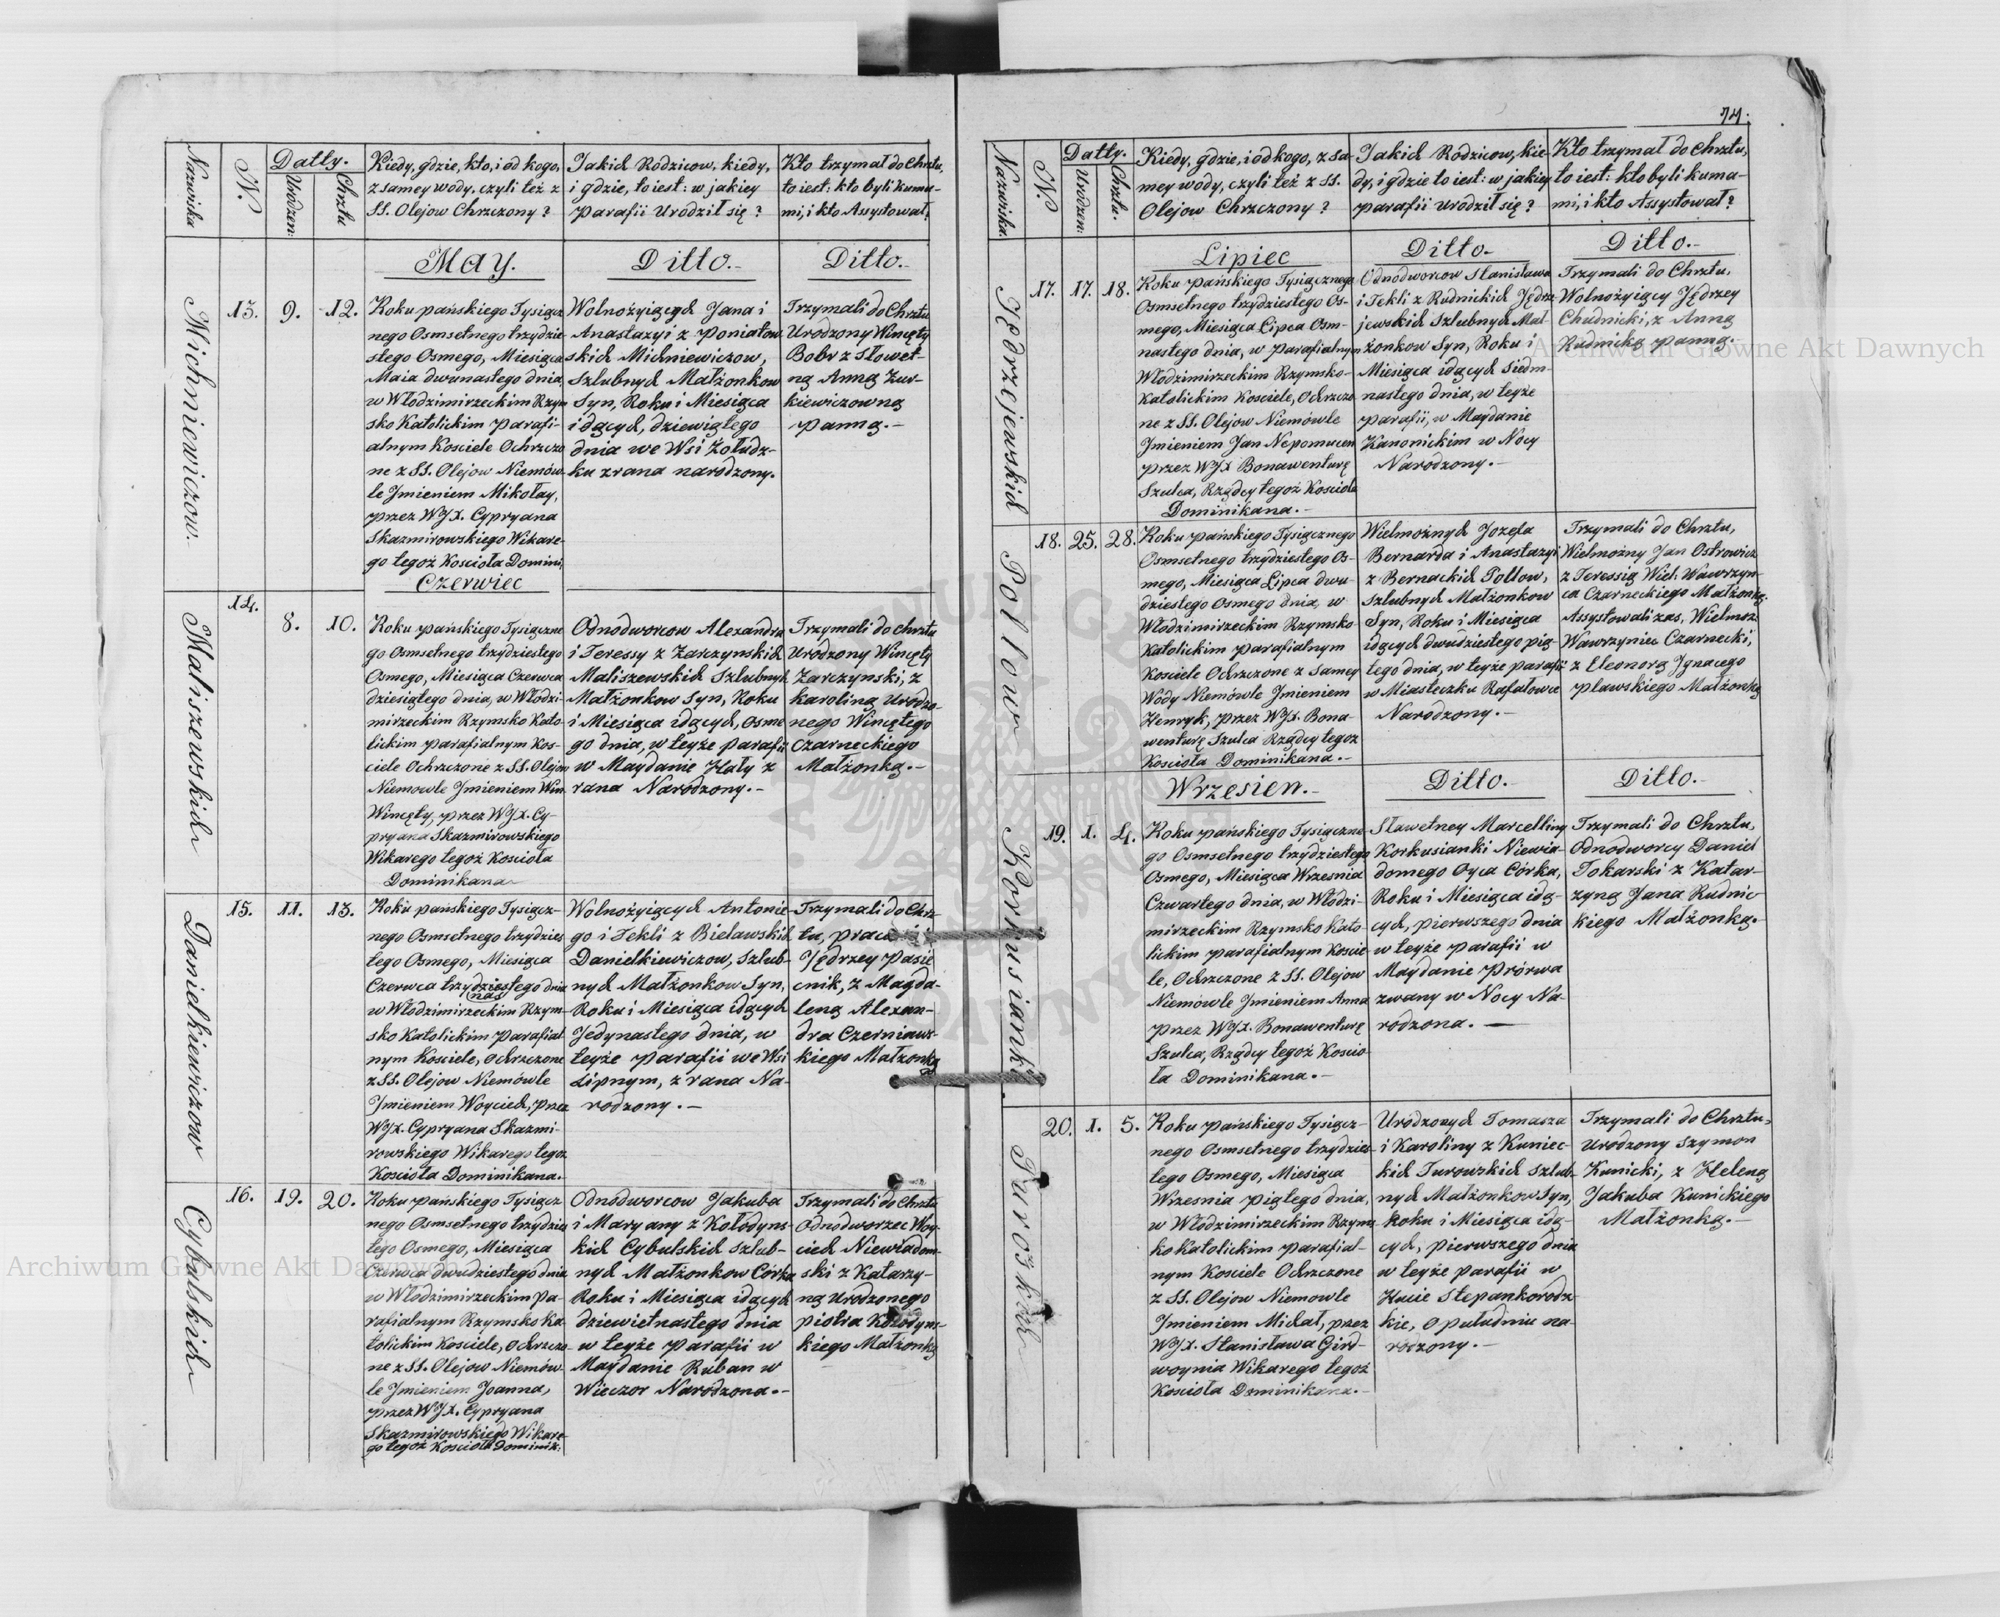 Nazwiska
N.
Datty.
Urodzen:
Chrztu
Kiedy, gdzie, kto, i od kogo,
z samey wody, czyli też z
SS. Olejow Chrzczony?
Jakich Rodzicow, kiedy,
i gdzie, to iest: w jakiey
parafii Urodził się?
Kto trzymał do Chrztu,
to iest: kto byli kuma-
mi, i kto Assystował?
May.
Ditto.-
Ditto.-
Michniewiczow.
13.
9.
12.
Roku pańskiego Tysiącz
nego Osmsetnego trzydzie
stego Osmego, Miesiąca
Maia dwunastego dnia
w Włodzimirzeckim Rzym
sko Katolickim parafi-
alnym Kosciele Ochrzczo
ne z SS. Olejow Niemów
le Jmieniem Mikołay,
przez WJX. Cypryana
Skazmirowskiego Wikare-
go tegoż Koscioła Domini,
Wolnożyiących Jana i
Anastazyi z Poniatow
skich Michniewiczow,
Szlubnych Małżonkow
Syn, Roku i Miesiąca
idących, dziewiątego
dnia we Wsi Żołudz-
ku z rana narodzony.
Trzymali do Chrztu
Urodzony Wincęty
Bobr z Słowet-
ną Anną Żur-
kiewiczowną
panną.-
Czerwiec
Maliszewskich
14.
8.
10.
Roku pańskiego Tysiączne
go Osmsetnego trzydziestego
Osmego, Miesiąca Czerwca
dziesiątego dnia, w Włodzi-
mirzeckim Rzymsko Kato-
lickim parafialnym Kos-
ciele Ochrzczone z SS. Olejow
Niemowle Jmieniem Win
Wincęty, przez WJX. Cy-
pryana Skazmirowskiego
Wikarego tegoż Kosciola
Dominikana
Odnodworcow Alexandra
i Teressy z Zarczynskich
Maliszewskich Szlubnych
Małżonkow Syn, Roku
i Miesiąca idących, Osme
go dnia, w teyże parafii
w Maydanie Hały z
rana Narodzony.-
Trzymali do Chrztu
Urodzony Wincęty
Zarczynski, z
Karoliną Urodzo-
nego Wincętego
Czarneckiego
Małżonką.-
Danielkiewiczow
15.
11.
13.
Roku pańskiego Tysiącz-
nego Osmsetnego trzydzies
tego Osmego, Miesiąca
Czerwca trzydziestego dnia
nas
w Włodzimirzeckim Rzym-
sko Katolickim parafial
nym Kosciele, Ochrzczone
z SS. Olejow Niemówle
Jmieniem Woyciech, przez
WJX. Cypryana Skazmi-
rowskiego Wikarego tegoż
Kosciola Dominikana.
Wolnożyiących Antonie-
go i Tekli z Bielawskich
Danielkiewiczow, Szlub-
nych Małżonkow Syn,
Roku i Miesiąca idących
Jedynastego dnia, w
teyże parafii we Wsi
Lipnym, z rana Na-
rodzony.-
Trzymali do Chrz-
tu,
Jędrzey Pasie
cnik, z Magda-
leną Alexan-
dra Czerniaws-
kiego Małżonką
Cybulskich
16.
19.
20.
Roku pańskiego Tysiącz
nego Osmsetnego trzydzies
tego Osmego, Miesiąca
Czerwca dwudziestego dnia
w Włodzimirzeckim pa-
rafialnym Rzymsko Ka
tolickim Kosciele, Ochrzczo-
ne z SS. Olejow Niemów-
le Jmieniem Joanna,
przez WJX. Cypryana
Skazmirowskiego Wikare-
go tegoż Kosciola Dominik:
Odnodworcow Jakuba
i Maryany z Kołodyns-
kich Cybulskich Szlub-
nych Małżonkow Córka
Roku i Miesiąca idących
dziewietnastego dnia
w teyże parafii w
Maydanie Ruban w
Wieczor Narodzona.-
Trzymali do Chrztu
Odnodworzec Woy-
ciech Niewiadom-
ski z Katarzy-
ną Urodzonego
Piotra Kołodyns-
kiego Małżonką
74.
Nazwiska.
N.
Datty.
Urodzen:
Chrztu.
Kiedy, gdzie, i od kogo, z sa-
mey wody, czyli też z SS.
Olejow Chrzczony?
Jakich Rodzicow, kie-
dy, i gdzie to iest: w jakiey
parafii urodził się?
Kto trzymał do Chrztu,
to iest: kto byli kuma-
mi, i kto Assystował?
Lipiec
Ditto.-
Ditto.-
Jędrzejewskich
17.
17.
18.
Roku pańskiego Tysiącznego
Osmsetnego trzydziestego Os-
mego, Miesiąca Lipca Osm-
nastego dnia, w parafialnym
Włodzimirzeckim Rzymsko-
Katolickim Kosciele, Ochrzczo
ne z SS. Olejow Niemówle
Jmieniem Jan Nepomucen
przez WJX Bonawenturę
Szulca, Rządcy tegoż Kosciola
Dominikana.-
Odnodworcow Stanisława
i Tekli z Rudnickich Jędrz
jewskich Szlubnych Mał-
żonkow Syn, Roku i
Miesiąca idących Siedm-
nastego dnia, w teyże
parafii, w Maydanie
Kanonickim w Nocy
Narodzony.-
Trzymali do Chrztu,
Wolnożyiący Jędrzey
Chudnicki, z Anną
Rudnicką panną.-
Pottow
18.
25.
28.
Roku pańskiego Tysiącznego
Osmsetnego trzydziestego Os-
mego, Miesiąca Lipca dwu-
dziestego Osmego dnia, w
Włodzimirzeckim Rzymsko
Katolickim parafialnym
Kosciele Ochrzczone z Samey
Wody Niemówle Jmieniem
Henryk, przez WJX. Bona-
wenturę Szulca Rządcy tegoż
Kosciola Dominikana.-
Wielmożnych Jozefa
Bernarda i Anastazyi
z Bernackich Pottow,
Szlubnych Małżonkow
Syn, Roku i Miesiąca
idących dwudziestego pią-
tego dnia, w teyże parafii
w Miasteczku Rafałowce
Narodzony.-
Trzymali do Chrztu,
Wielmożny Jan Ostrowicz
z Teressią Wiel: Wawrzyn-
ca Czarneckiego Małżonką.
Assystowali zas, Wielmoż:
Wawrzyniec Czarnecki,
z Eleonorą Jgnacego
Pławskiego Małżonką
Wrzesien.-
Ditto.-
Ditto.-
Korkusianki
19.
1.
4.
Roku pańskiego Tysiączne-
go Osmsetnego trzydziestego
Osmego, Miesiąca Wrzesnia
Czwartego dnia, w Włodzi-
mirzeckim Rzymsko Kato-
lickim parafialnym Koscie
le, Ochrzczone z SS. Olejow
Niemówle Jmieniem Anna
przez WJX. Bonawenturę
Szulca, Rządcy tegoż Koscio-
ła Dominikana.-
Sławetney Marcelliny
Korkusianki Niewia-
domego Oyca Córka,
Roku i Miesiąca idą-
cych, pierwszego dnia
w teyże parafii w
Maydanie Prórwa
zwany w Nocy Na-
rodzona.-
Trzymali do Chrztu,
Odnodworcy Daniel
Tokarski z Katar-
zyną Jana Rudnic-
kiego Małżonką.
Turoskich
20.
1.
5.
Roku pańskiego Tysiącz-
nego Osmsetnego trzydzies-
tego Osmego, Miesiąca
Wrzesnia piątego dnia,
w Włodzimirzeckim Rzyms
ko Katolickim parafial-
nym Kosciele Ochrzczone
z SS. Olejow Niemowle
Jmieniem Michał, przez
WJX. Stanisława Gird-
woynia Wikarego tegoż
Kosciola Dominikana.-
Urodzonych Tomasza
i Karoliny z Kuniec-
kich Turowskich Szlub-
nych Małżonkow Syn,
Roku i Miesiąca idą-
cych, pierwszego dnia
w teyże parafii w
Hucie Stepankorodz
kie, o południu na-
rodzony.-
Trzymali do Chrztu,
Urodzony Szymon
Kunicki, z Heleną
Jakuba Kunickiego
Małżonką.-
Archiwum Główne Akt Dawnych
Archiwum Główne Akt Dawnych